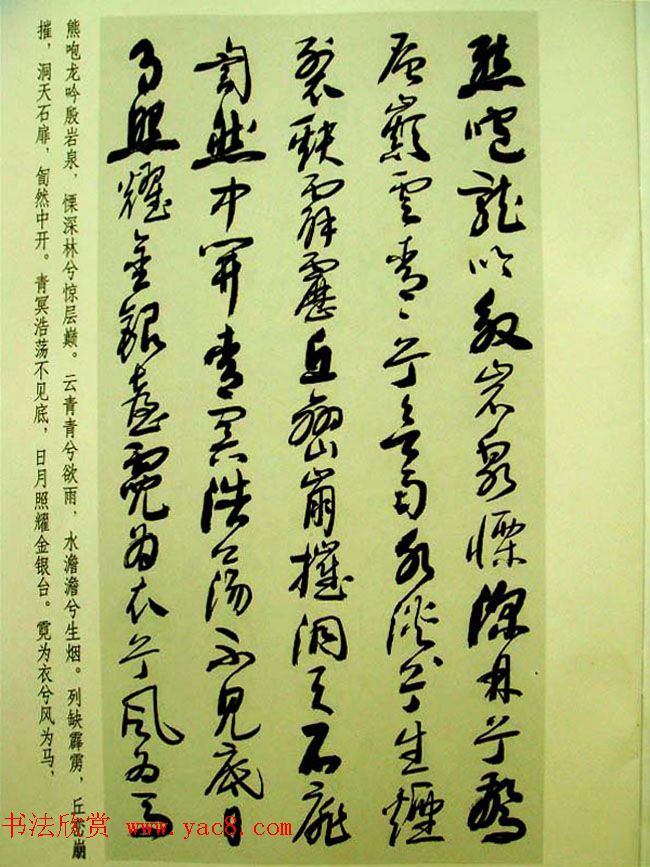 熊咆龍吟殷岩泉慄深林兮驚
层巔雲青々兮欲雨水澹々兮生煙
裂缺霹靂丘巒崩摧洞天石扉
訇然中開青冥浩蕩不見底日
月照耀金銀臺霓為衣兮風為馬
熊咆龙吟殷岩泉，慄深林兮惊层巅。云青青兮欲雨，水澹澹兮生烟。列缺霹雳，丘峦崩
摧，洞天石扉，訇然中开。青冥浩荡不见底，日月照耀金银台。霓为衣兮风为马，
书法欣赏 www.yac8.com